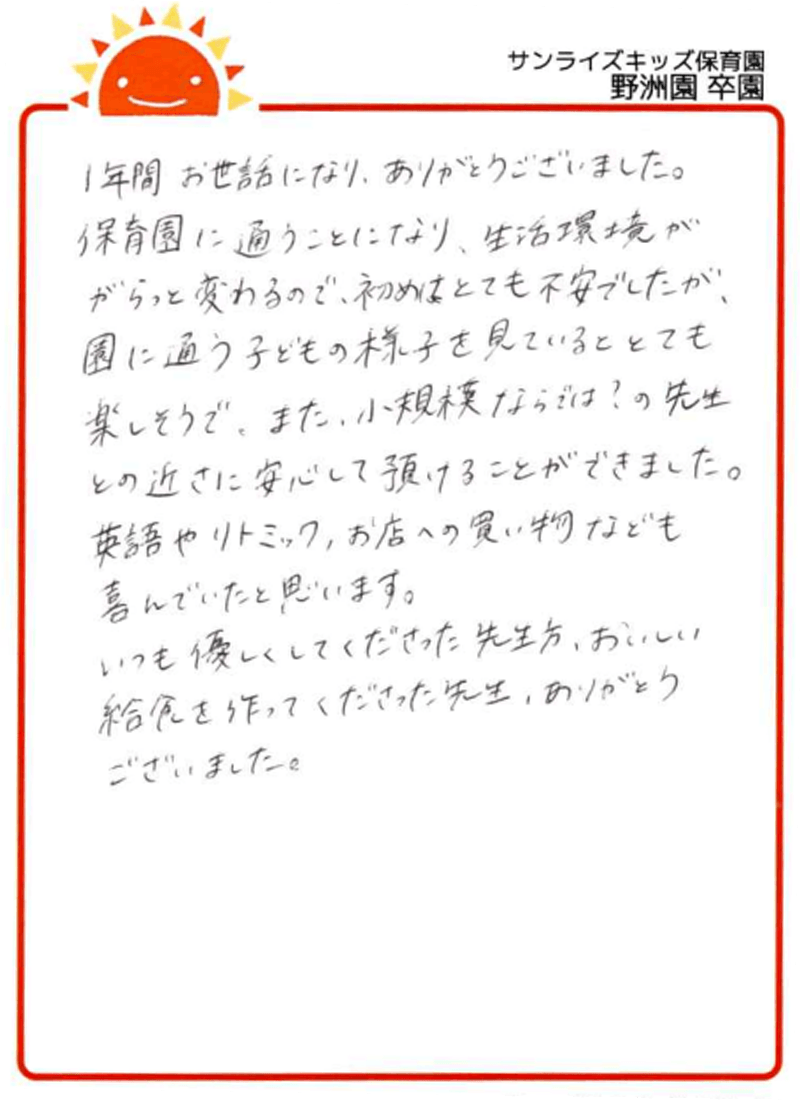 サンライズキッズ保育園
野洲園 卒園
1年間 お世話になり、ありがとうございました。
保育園に通うことになり、生活環境が
がらっと変わるので、初めはとても不安でしたが、
園に通う子どもの様子を見ているととても
楽しそうで、また、小規模ならでは?の先生
との近さに安心して預けることができました。
英語やリトミック,お店への買い物なども
喜んでいたと思います。
いつも優しくしてくださった先生方、おいしい
給食を作ってくださった先生,ありがとう
ございました。